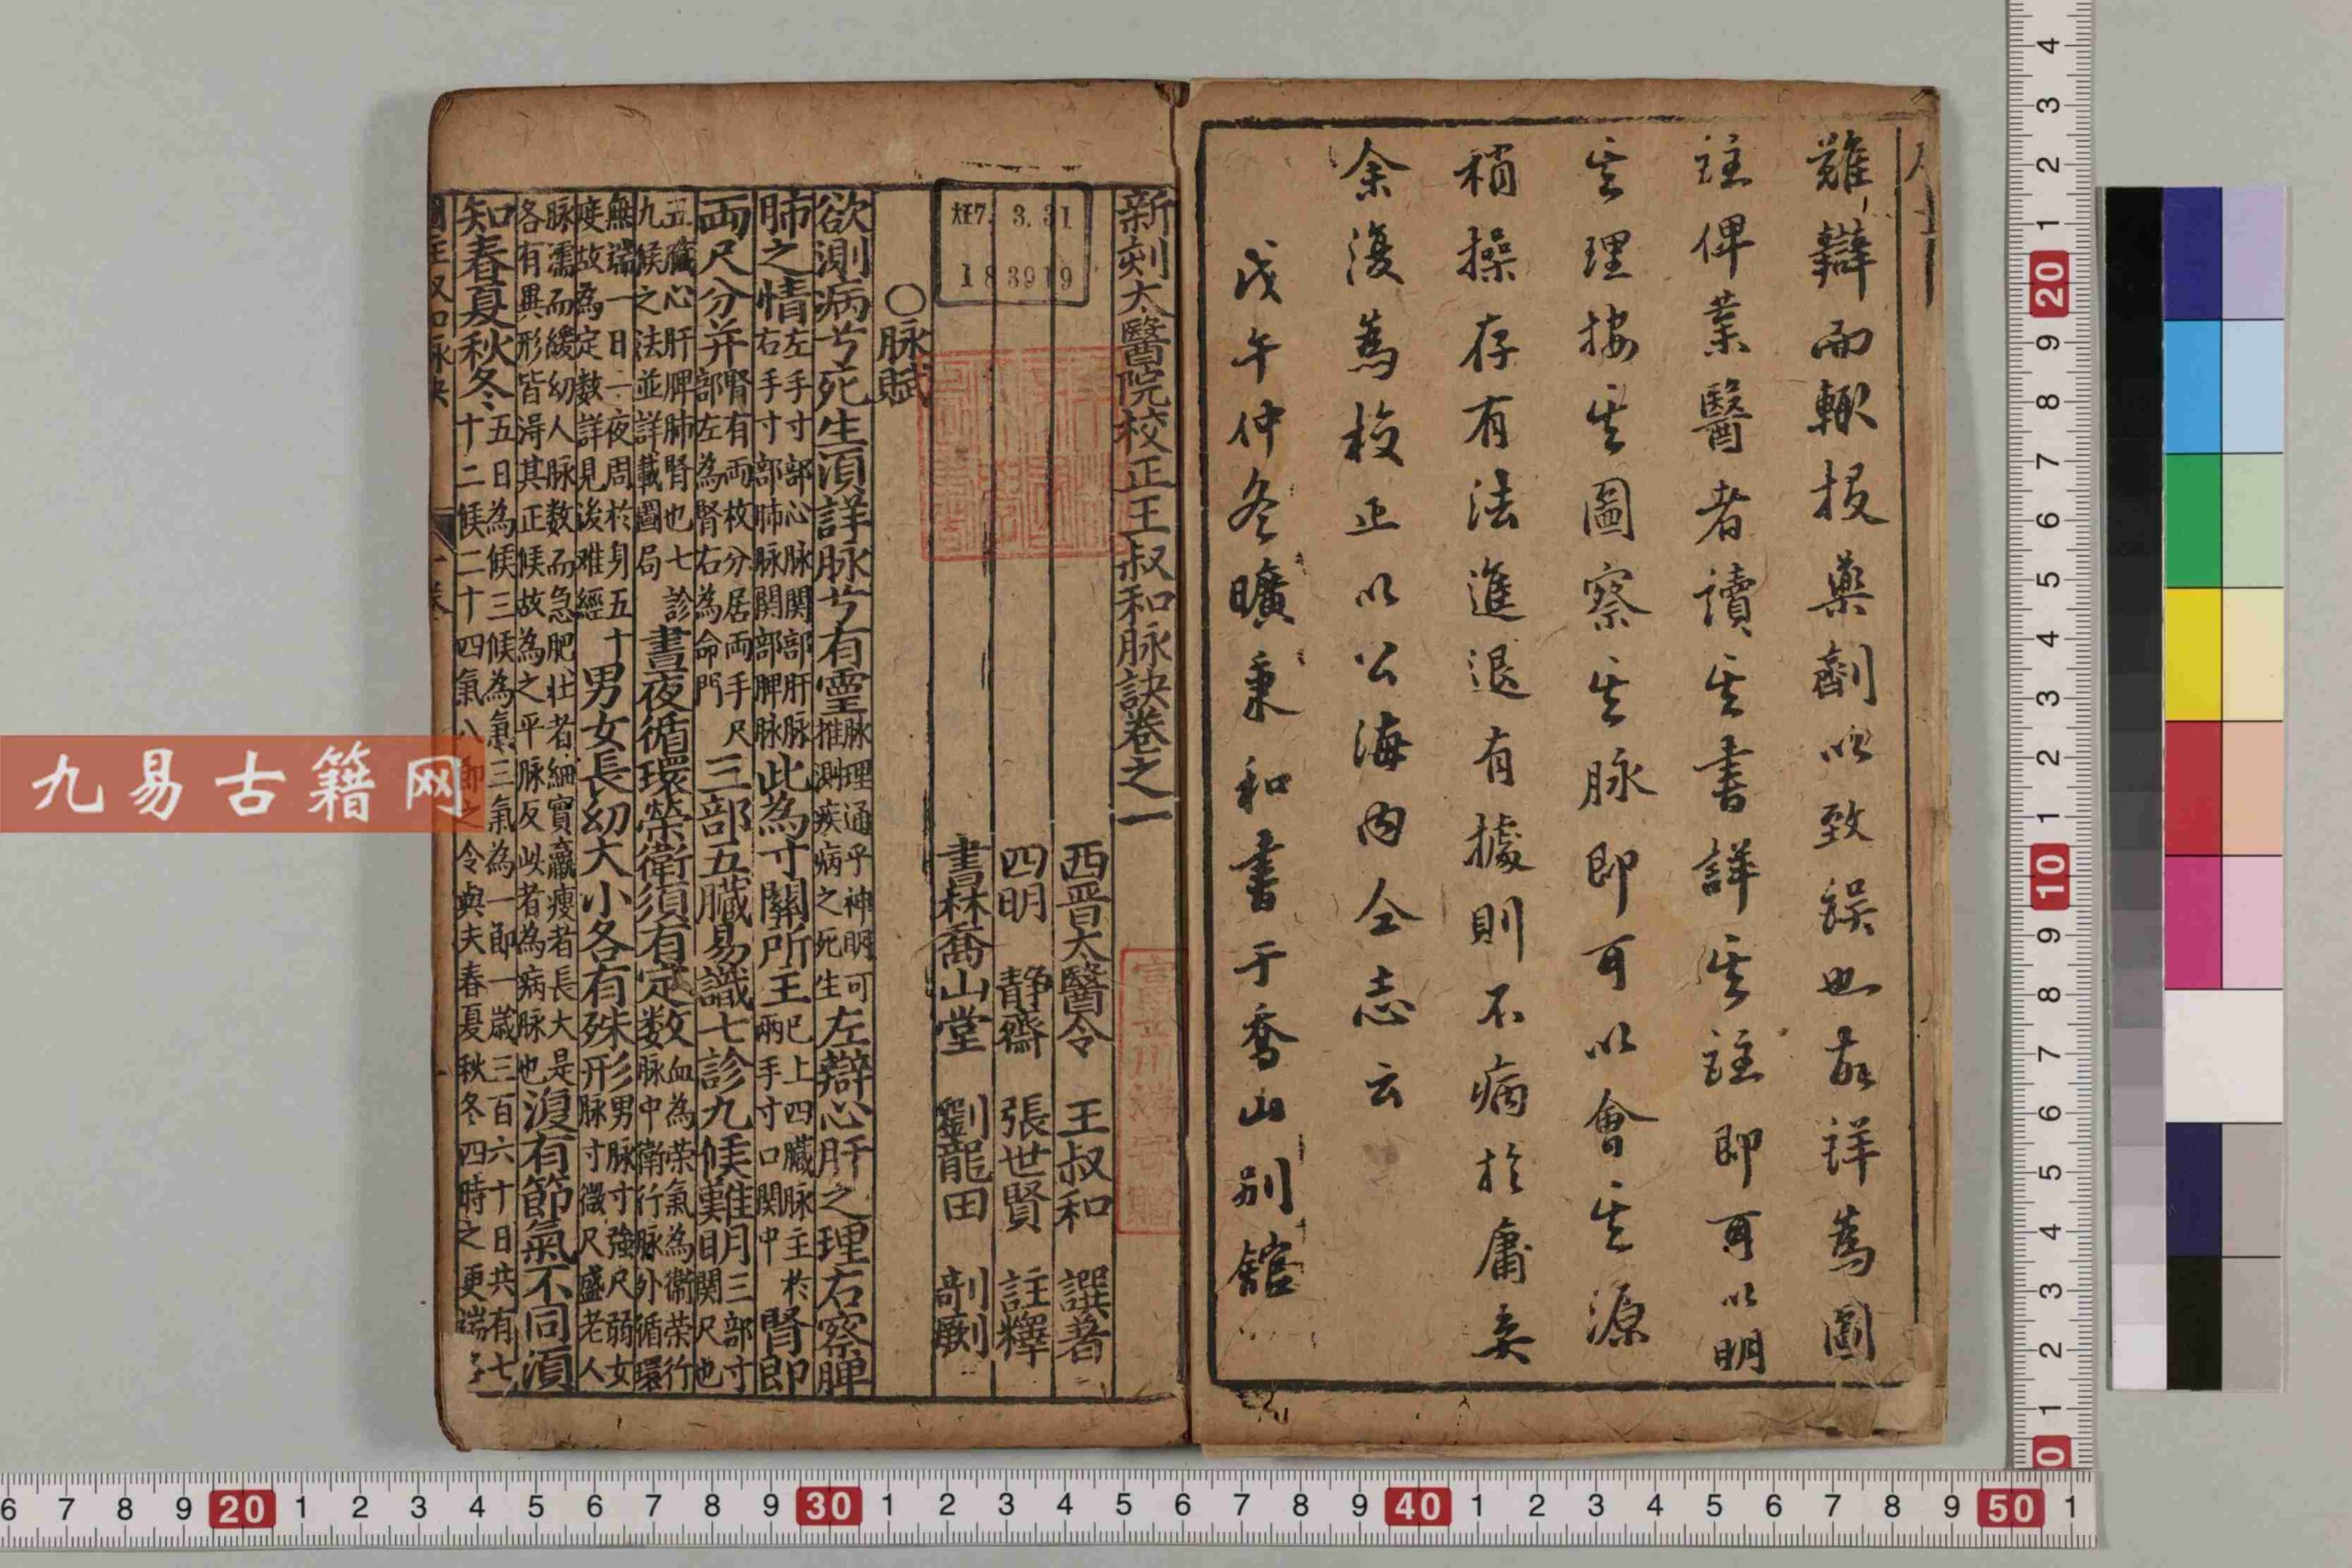 難辯而輒投藥劑以致誤也故詳為圖
註俾業醫者讀其書詳其註即可以明
其理按其圖察其脉即可以會其源
稍操存有法進退有據則不病於庸矣
余復為校正以公海內仝志云
戊午仲冬曠秉和書于喬山別舘
新刻太醫院校正王叔和脉訣卷之一
西晋太醫令 王叔和 譔著
四明 靜齋 張世賢 註釋
書林喬山堂 劉龍田 剞劂
大正7. 3. 31
183919
○脉賦
欲測病兮死生湏詳脉兮有靈
脉理通乎神明可
推測疾病之死生
左辯心肝之理右察脾
肺之情
左手寸部心脉関部肝脉
右手寸部肺脉関部脾脉
此為寸關所主
已上四臓脉主於
兩手寸口関中
腎即
両尺分并
腎有両枚分居両手尺
部左為腎右為命門
三部五臓易識七診九候難明
三部寸
関尺也
五臓心肝脾肺腎也七診
九候之法並詳載圖局
晝夜循環榮衛須有定数
血為荣氣為衛荣行
脉中衛行脉外循環
無端一日一夜周於身五十
度故為定數詳見後难經
男女長幼大小各有殊形
男脉寸強尺弱女
脉寸微尺盛老人
脉濡而緩幼人脉数而急肥壯者細實羸瘦者長大是
各有異形皆得其正候故為之平脉反此者為病脉也
復有節氣不同湏
知春夏秋冬
五日為候三候為氣三氣為一節一歲三百六十日共有七
十二候二十四氣八節之令與夫春夏秋冬四時之更端
富士川游寄贈
九易古籍网